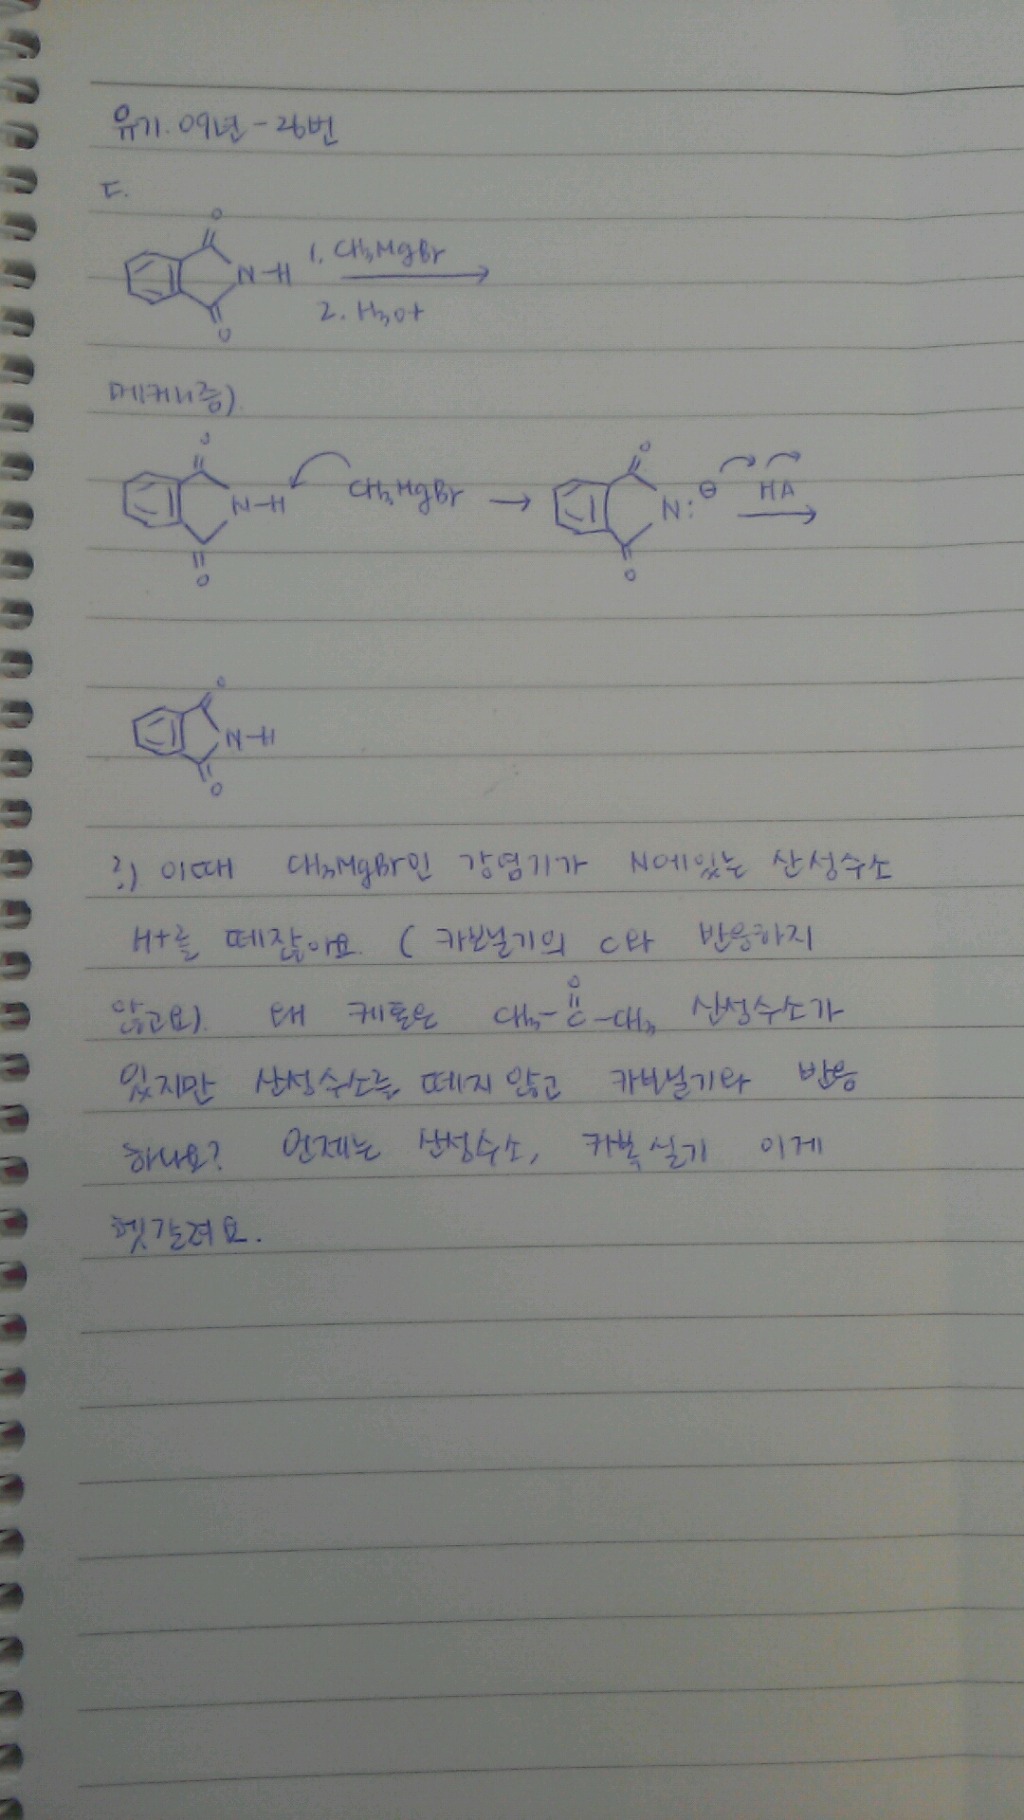 유기. 09년 - 26번
ㄷ.
O
N-H
1. CH3MgBr
2. H3O+
O
메커니즘)
O
N-H
CH3MgBr
O
O
N:
⊖
HA
O
O
N-H
O
?) 이때 CH3MgBr인 강염기가 N에있는 산성수소
H+를 떼잖아요 ( 카보닐기의 C와 반응하지
않고요). 왜 케톤은 CH3-C-CH3 산성수소가
O
있지만 산성수소를 떼지 않고 카보닐기와 반응
하나요? 언제는 산성수소, 카복실기 이게
헷갈려요.